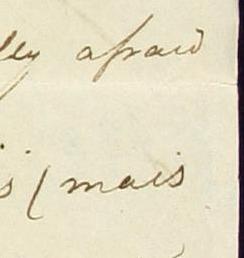 lly afraid
s (mais